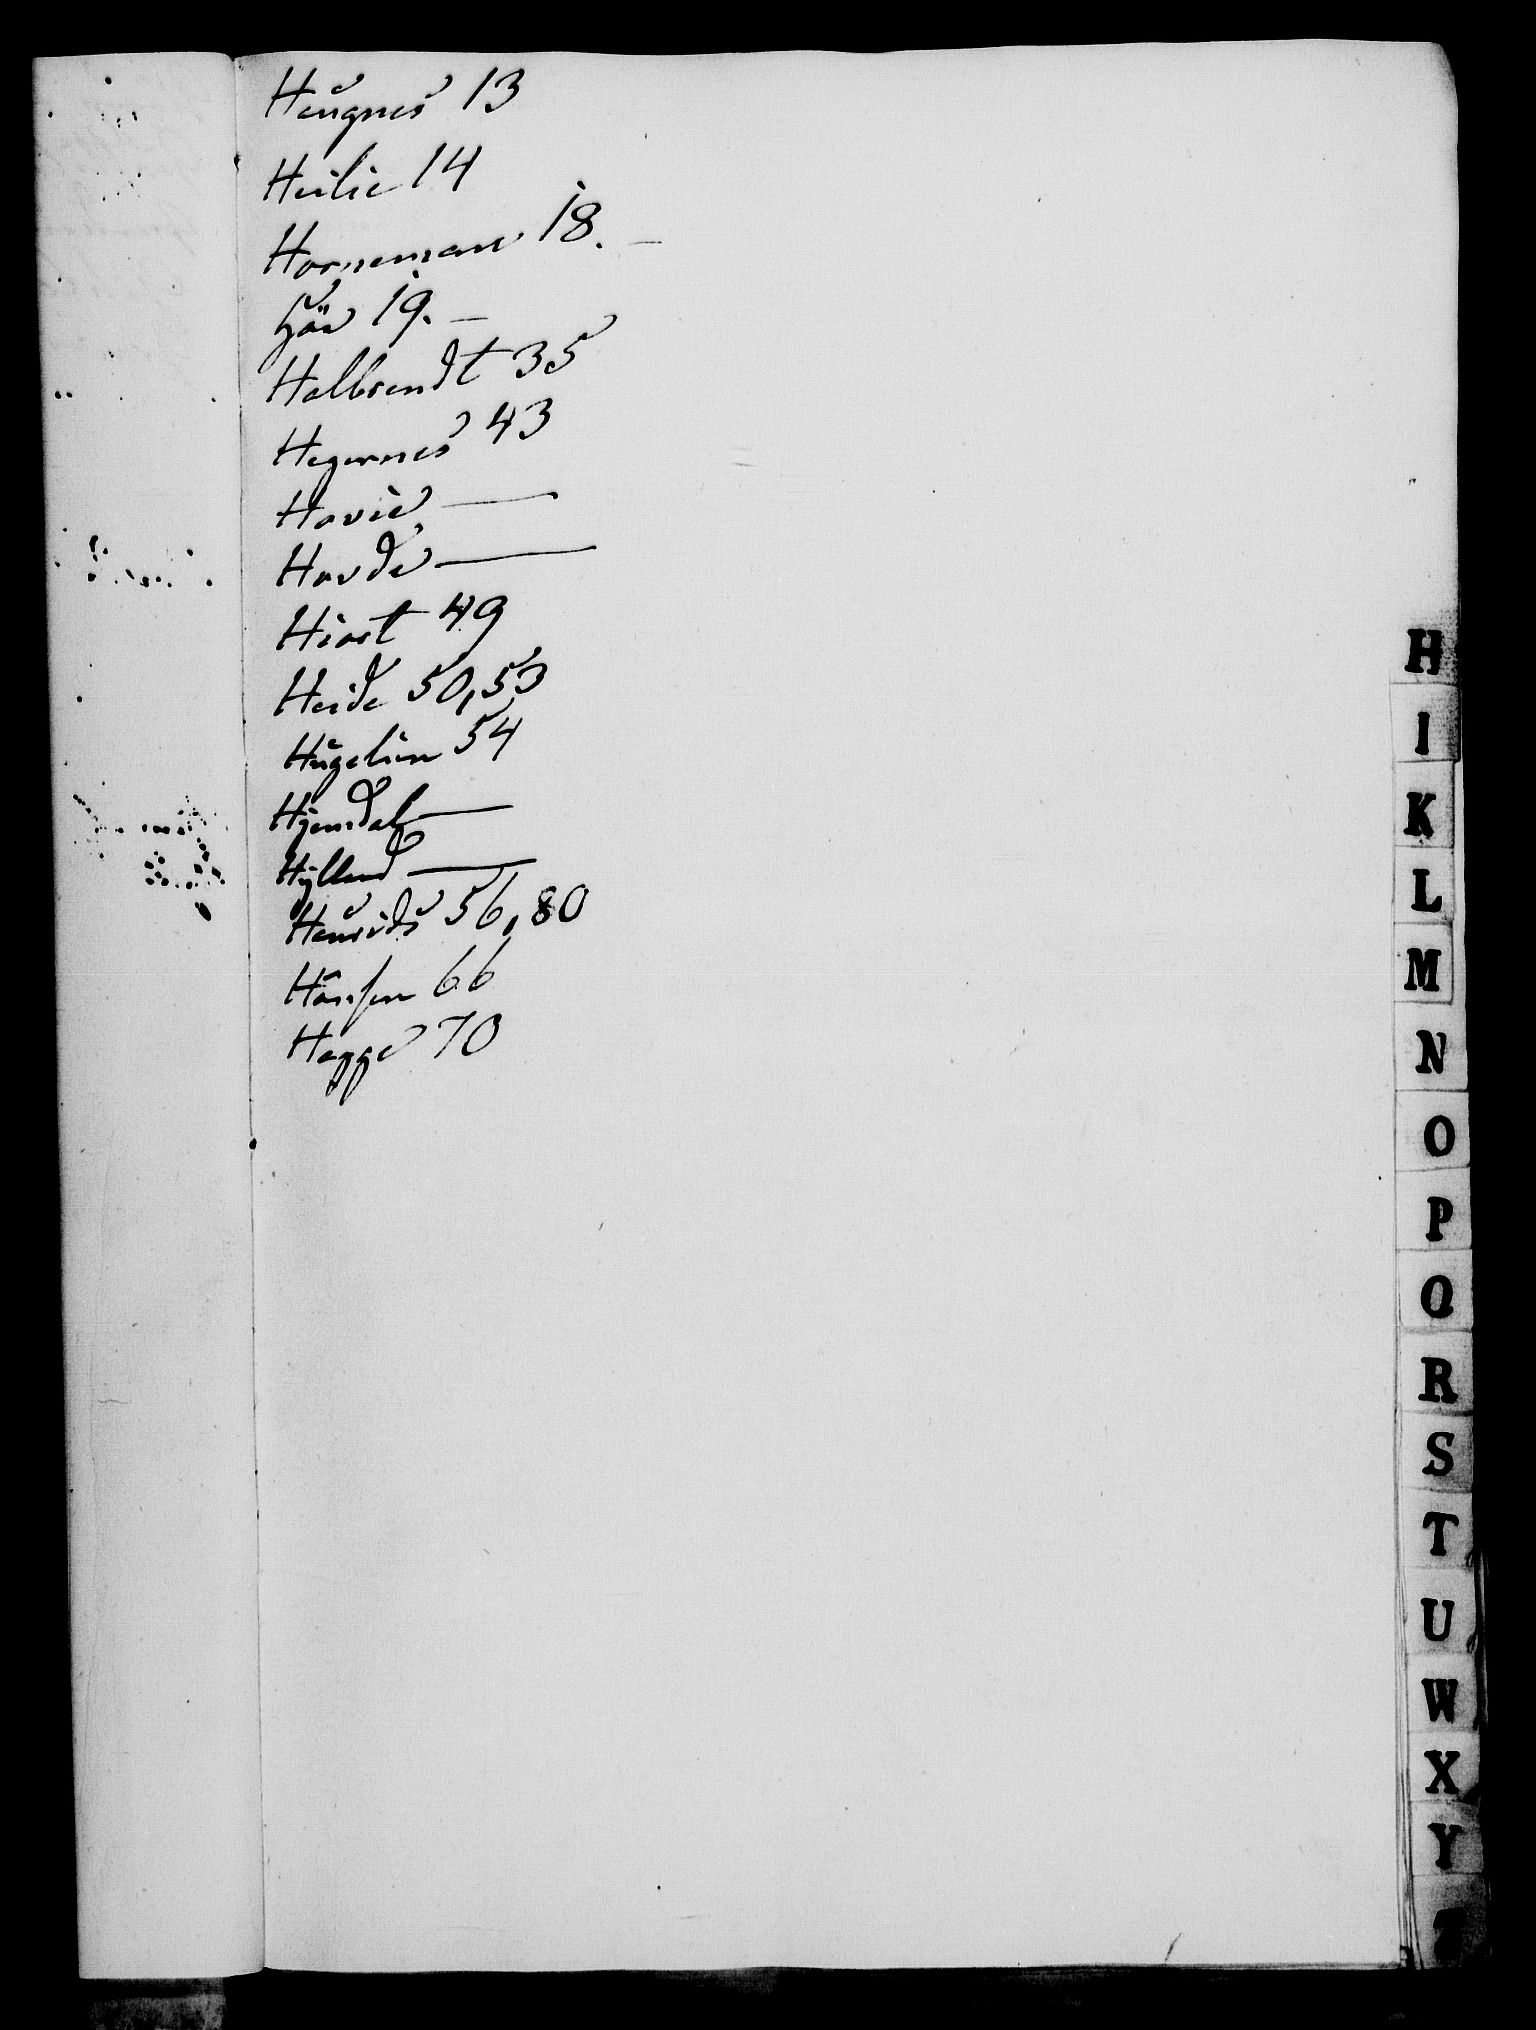 Haugnes 13
Heilie 14
Horneman 18. —
Höe 19. —
Helbrendt 35
Hegernes 43
Hovie —
Hovde —
Hiort 49
Heide 50,53
Hugelien 54
Hjemdal —
Hylland —
Hansens 66
Hegge 70
H
I
K
L
M
N
O
P
Q
R
S
T
U
W
X
Y